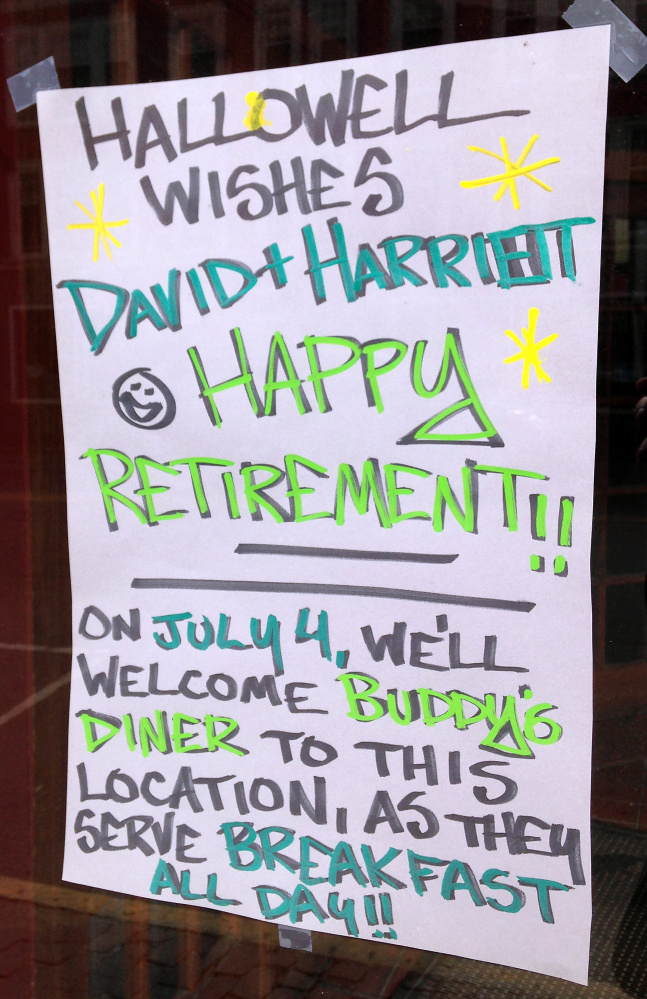 HALLOWELL
WISHES
DAVID + HARRIETT
HAPPY
RETIREMENT!!
ON JULY 4, WE'LL
WELCOME BUDDY'S
DINER TO THIS
LOCATION, AS THEY
SERVE BREAKFAST
ALL DAY!!